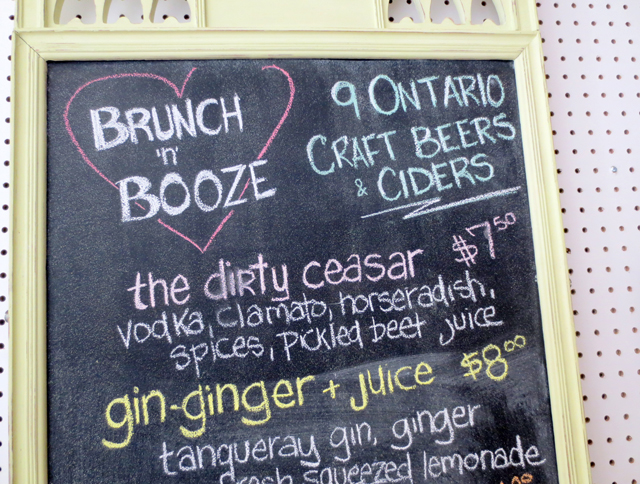 BRUNCH
'n'
BOOZE
9 ONTARIO
CRAFT BEERS
& CIDERS
the dirty ceasar $7.50
vodka, clamato, horseradish,
spices, pickled beet juice
gin-ginger + juice $8.00
tanqueray gin, ginger
fresh squeezed lemonade